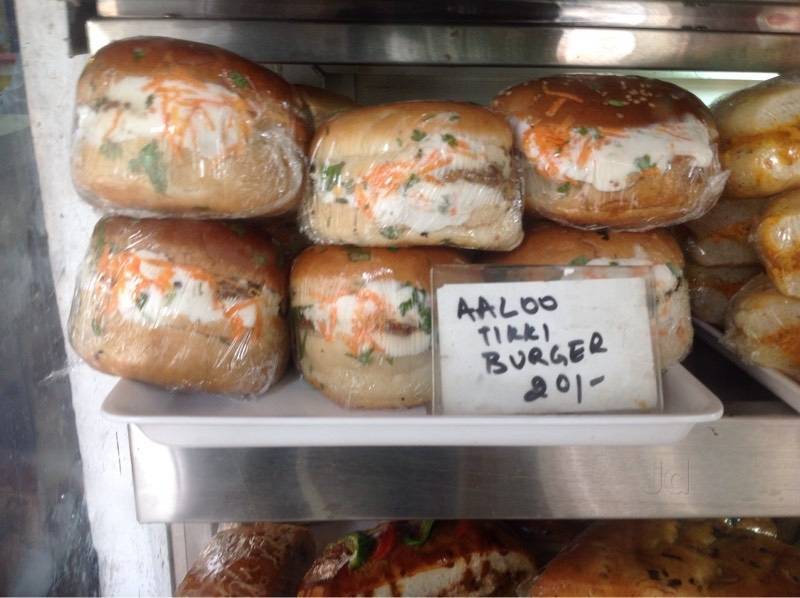 AALOO
TIKKI
BURGER
20/-
Jd